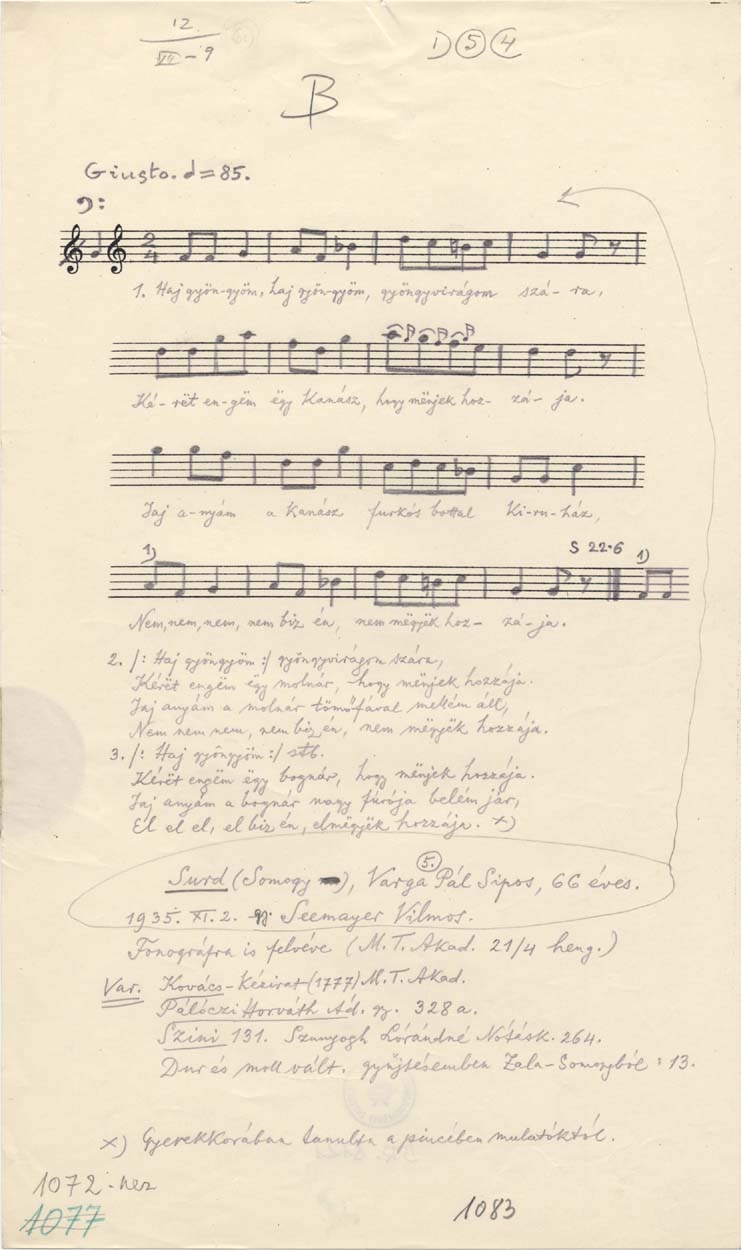 12.
VII - 9
D 5 4
B
Giusto. d = 85.
2 4
1. Haj gyön-gyöm, haj gyön-gyöm, gyöngyvirágom szá- ra,
Ké- rët en-gëm ëgy Kanász, hogy mënjek hoz- zá- ja.
Jaj a-nyám a Kanász furkós bottal Ki-ru-ház,
1) S 22·6 1)
Nem, nem, nem, nem biz én, nem mëgyëk hoz- zá-ja.
2. /: Haj gyöngyöm :/ gyöngyvirágom szára,
Kérët engëm ëgy molnár, hogy mënjek hozzája.
Jaj anyám a molnár tömőfával mellém áll,
Nem nem nem, nem biz én, nem mëgyëk hozzája.
3. /: Haj gyöngyöm :/ stb.
Kérët engëm ëgy bognár, hogy mënjek hozzája.
Jaj anyám a bognár nagy fúrója belém jár,
El el el, el biz én, elmëgyëk hozzája. x)
5.
Surd (Somogy), Varga Pál Sipos, 66 éves.
1935. XI. 2. gy. Seemayer Vilmos.
Fonográfra is felvéve (M. T. Akad. 21/4 heng.)
Var. Kovács-Kézirat (1777) M. T. Akad.
Pálóczi Horváth Ád. gy. 328 a.
Szini 131. Szunyogh Lórándné Nótásk. 264.
Dur és moll vált. gyűjtésemben Zala-Somogyból : 13.
x) Gyerekkorában tanulta a pincében mulatóktól.
1072-hez
1077
1083